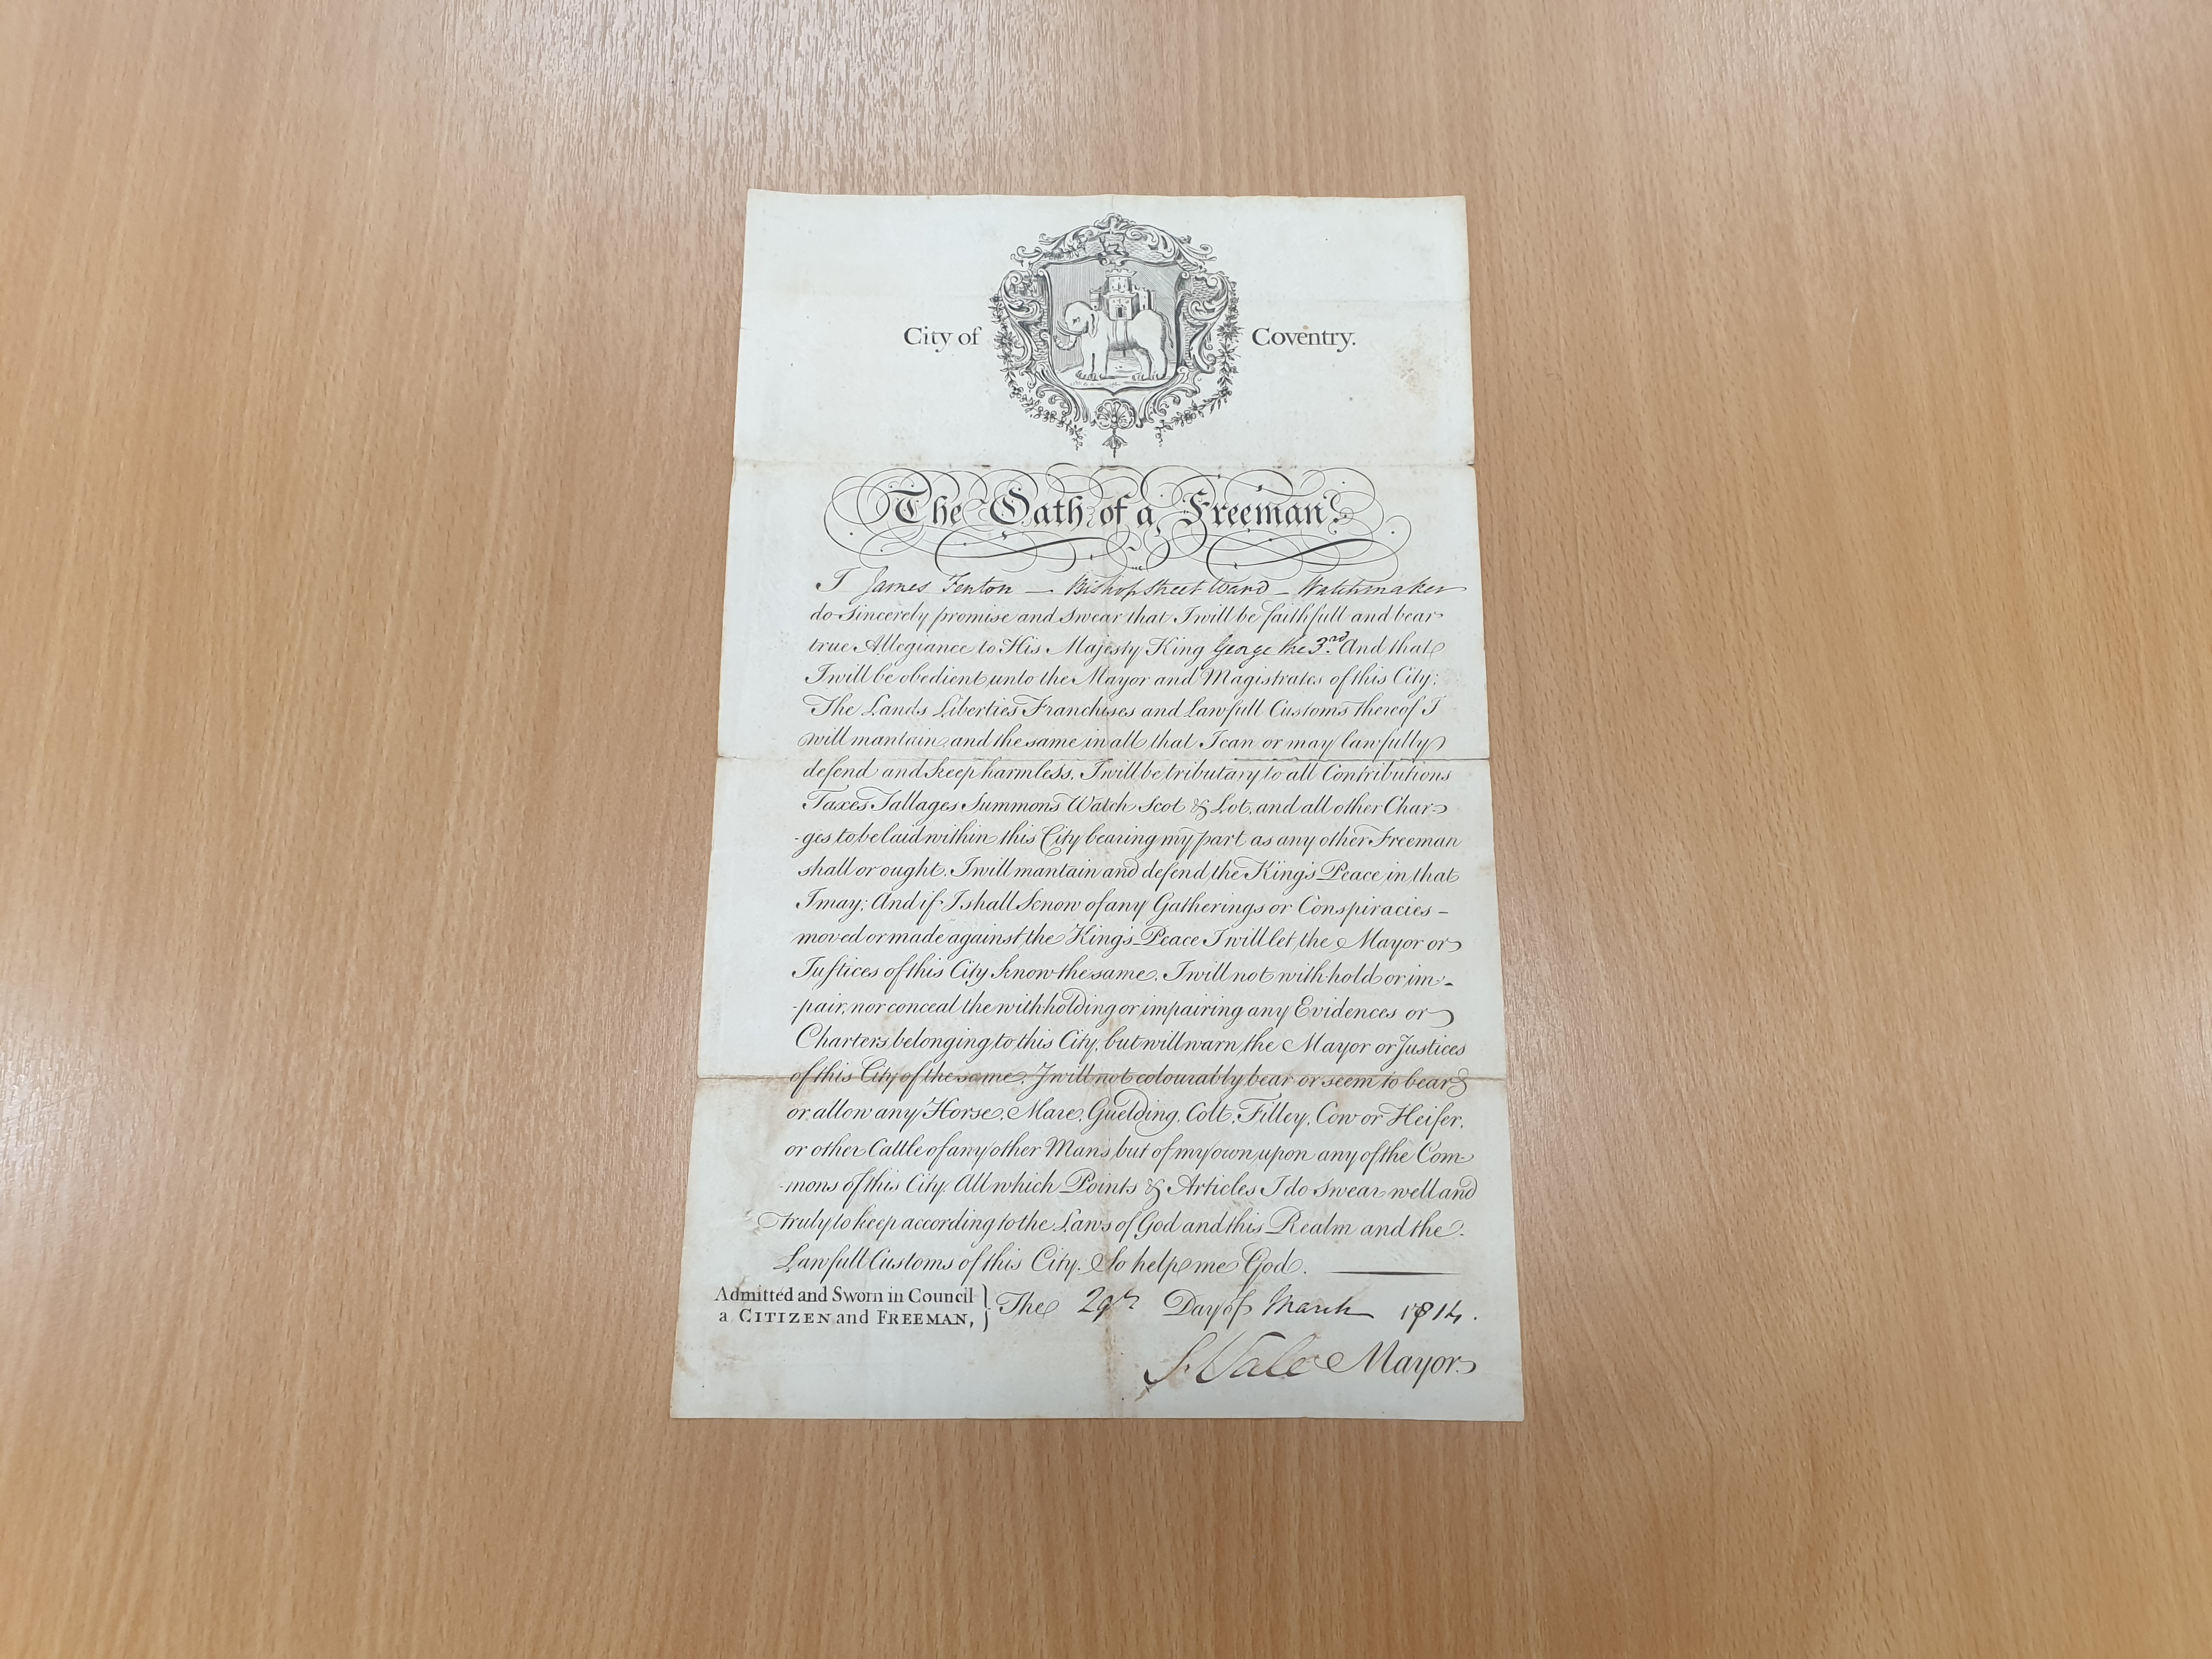 City of Coventry.
The Oath of a Freeman.
I James Fenton — Bishop Street Ward — Watchmaker
do Sincerely promise and Swear that I will be faithfull and bear
true Allegiance to His Majesty King George the 3rd. And that
I will be obedient unto the Mayor and Magistrates of this City;
The Lands Liberties Franchises and Lawfull Customs thereof I
will mantain and the same in all that I can or may lawfully
defend and keep harmless. I will be tributary to all Contributions
Taxes Tallages Summons Watch Scot & Lot, and all other Char-
-ges to be laid within this City bearing my part as any other Freeman
shall or ought. I will mantain and defend the King's Peace in that
I may; And if I shall know of any Gatherings or Conspiracies –
moved or made against the King's Peace I will let the Mayor or
Justices of this City know the same. I will not with-hold or im-
-pair, nor conceal the withholding or impairing any Evidences or
Charters belonging to this City, but will warn the Mayor or Justices
of this City of the same. I will not colourably bear or seem to bear
or allow any Horse, Mare, Guelding, Colt, Filley, Cow or Heifer,
or other Cattle of any other Man's but of my own upon any of the Com-
-mons of this City. All which Points & Articles I do Swear well and
truly to keep according to the Laws of God and this Realm and the
Lawfull Customs of this City. So help me God.
Admitted and Sworn in Council
a CITIZEN and FREEMAN, } The 29th Day of March 1814.
S. Vale Mayor